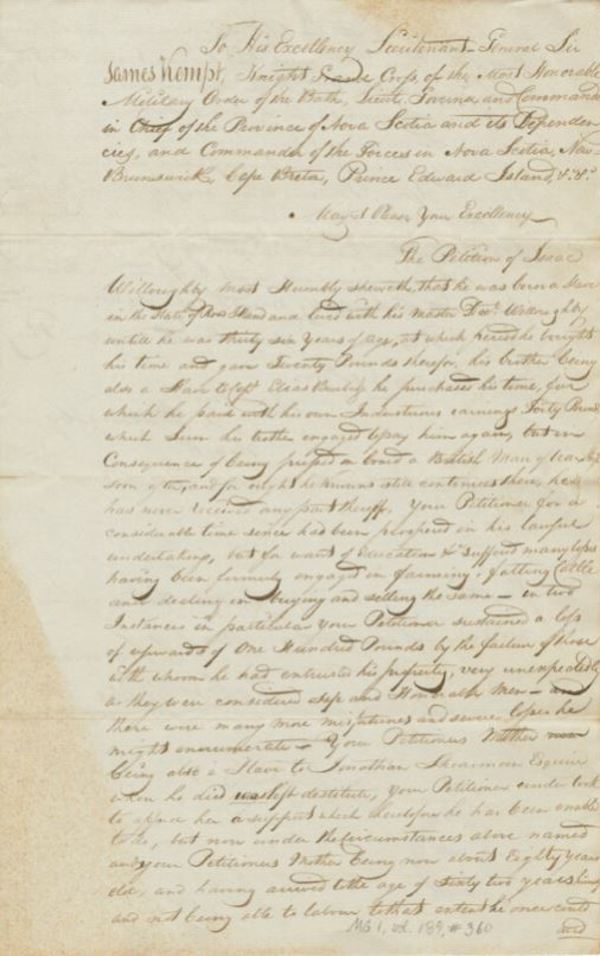 To His Excellency Lieutenant General Sir
James Kempt, Knight Grand Cross of the Most Honorable
Military Order of the Bath, Lieut. Governor and Commander
in Chief of the Province of Nova Scotia and its Dependen
cies, and Commander of the Forces in Nova Scotia, New
Brunswick, Cape Breton, Prince Edward Island, &c &c
May it Please Your Excellency
The Petition of Isaac
Willoughby most Humbly sheweth, that he was born a Slave
in the State of and lived with his master Docr. Willoughby
until he was thirty six Years of age, at which period he bought
his time and gave Twenty Pounds therefor, his brother being
also a Slave to Capt. Elias he purchased his time, for
which he paid with his own Industrious earnings Forty Pounds
which Sum his brother engaged to pay him again, but in
Consequence of being pressed on board a British Man of War
soon after, and for ought he knows still continues there, he
has never received any part thereof. Your Petitioner for a
considerable time since had been prospered in his lawful
undertaking, but for want of Education &c suffered many losses
having been formerly engaged in farming, fatting Cattle
and dealing in buying and selling the same — in two
Instances in particular your Petitioner sustained a loss
of upwards of One Hundred Pounds by the failure of those
with whom he had entrusted his property, very unexpectedly
as they were considered safe and Honorable Men — and
there were many more misfortunes and severe losses he
might enumerate — Your Petitioners Mother
being also a Slave to Jonathan Shearman Esquire
when he died was left destitute, your Petitioner under took
to afford her a support which heretofore he has been enable
to do, but now under the Circumstances above named
and your Petitioners Mother being now about Eighty years
old, and having arrived to the age of Sixty two years himself
and not being able to labour to that extent he once could
and
MG 1, vol. 189, #360